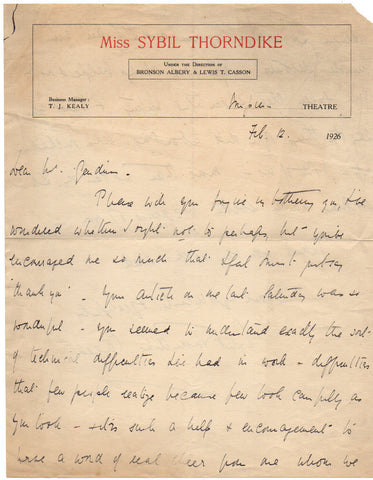 Miss SYBIL THORNDIKE
UNDER THE DIRECTION OF
BRONSON ALBERY & LEWIS T. CASSON
Business Manager:
T. J. KEALY
Empire THEATRE,
Feb. 12. 1926
Dear Mr.
Please will you forgive my bothering you, I've
wondered whether I ought not to perhaps, but you've
encouraged me so much that I feel I must just say
'thank you' - Your article on me last Saturday was so
wonderful - you seemed to understand exactly the sort
of technical difficulties I've had in work - difficulties
that few people realize because few look carefully as
you look - & it's such a help & encouragement to
have a word of real cheer from one whom we